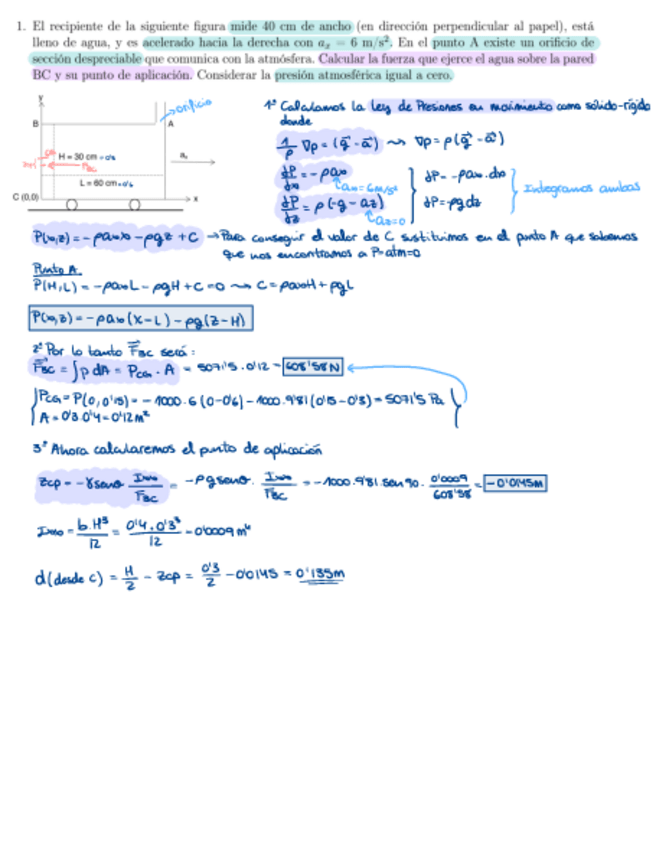 1. El recipiente de la siguiente figura mide 40 cm de ancho (en dirección perpendicular al papel), está
lleno de agua, y es acelerado hacia la derecha con aₓ = 6 m/s². En el punto A existe un orificio de
sección despreciable que comunica con la atmósfera. Calcular la fuerza que ejerce el agua sobre la pared
BC y su punto de aplicación. Considerar la presión atmosférica igual a cero.
y
orificio
B
A
H = 30 cm = 0'3
aₓ
L = 60 cm = 0'6
C (0,0)
x
1º Calculamos la Ley de Presiones en movimiento como sólido-rígido
donde
1/ρ ∇p = (g⃗ - a⃗) ⇝ ∇p = ρ(g⃗ - a⃗)
dP/dx = -ρax
ax = 6m/s²
dP/dz = ρ(-g - az)
az=0
dP = -ρax.dx
dP = -ρg dz
Integramos ambas
P(x,z) = -ρax x - ρgz + C → Para conseguir el valor de C sustituimos en el punto A que sabemos
que nos encontramos a P=atm=0
Punto A.
P(H,L) = -ρax L - ρgH + C = 0 ⇝ C = ρaxH + ρgL
P(x,z) = -ρax (x-L) - ρg(z-H)
2º Por lo tanto F⃗BC será:
F⃗BC = ∫p dA = PCG . A = 5071'5 . 0'12 = 608'58 N
PCG = P(0, 0'15) = -1000.6 (0-0'6) - 1000.9'81 (0'15-0'3) = 5071'5 Pa
A = 0'3.0'4 = 0'12 m²
3º Ahora calcularemos el punto de aplicación
zcp = -γ senθ Ixx/FBC = -ρg senθ . Ixx/FBC = -1000.9'81.sen 90 . 0'0009/608'58 = -0'0145m
Ixx = b.H³/12 = 0'4.0'3³/12 = 0'0009 m⁴
d(desde c) = H/2 - zcp = 0'3/2 - 0'0145 = 0'135m